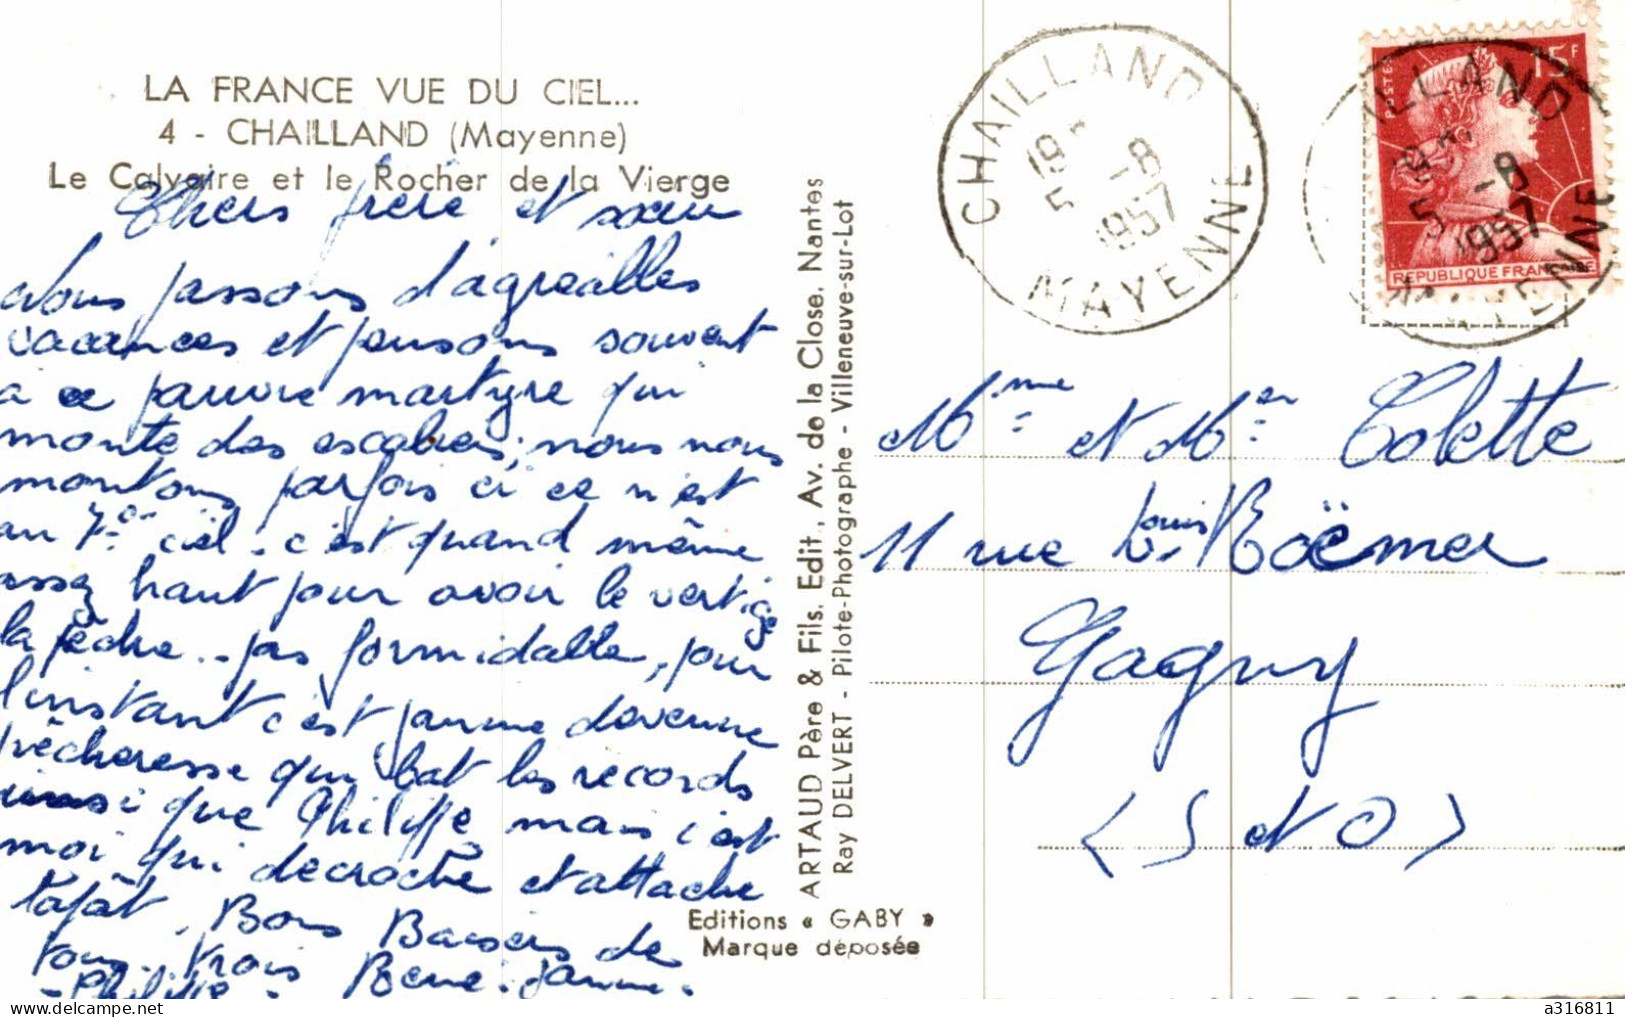 LA FRANCE VUE DU CIEL...
4 - CHAILLAND (Mayenne)
Le Calvaire et le Rocher de la Vierge
Chers frère et sœur
Nous passons d'agréables
vacances et pensons souvent
à ce pauvre martyre qui
monte des escaliers, nous nous
montons parfois ici ce n'est
au 7e ciel. c'est quand même
assez haut pour avoir le vertige
la pêche... pas formidable, pour
l'instant c'est devenue
pêcheresse qui bat les records
ainsi que Philippe mais c'est
moi qui decroche et attache
. Bons Baisers de
tous trois
- Philippe -
ARTAUD Père & Fils. Edit., Av. de la Close. Nantes
Ray DELVERT - Pilote-Photographe - Villeneuve-sur-Lot
Editions « GABY »
Marque déposée
CHAILLAND
19H
5 -8
1957
MAYENNE
15F
POSTES
REPUBLIQUE FRANCAISE
ILLAND
19H
5 -8
1957
YENNE
Mme et Mer Colette
11 rue Louis Roëmer
Gagny
(S et O)
www.delcampe.net
a316811